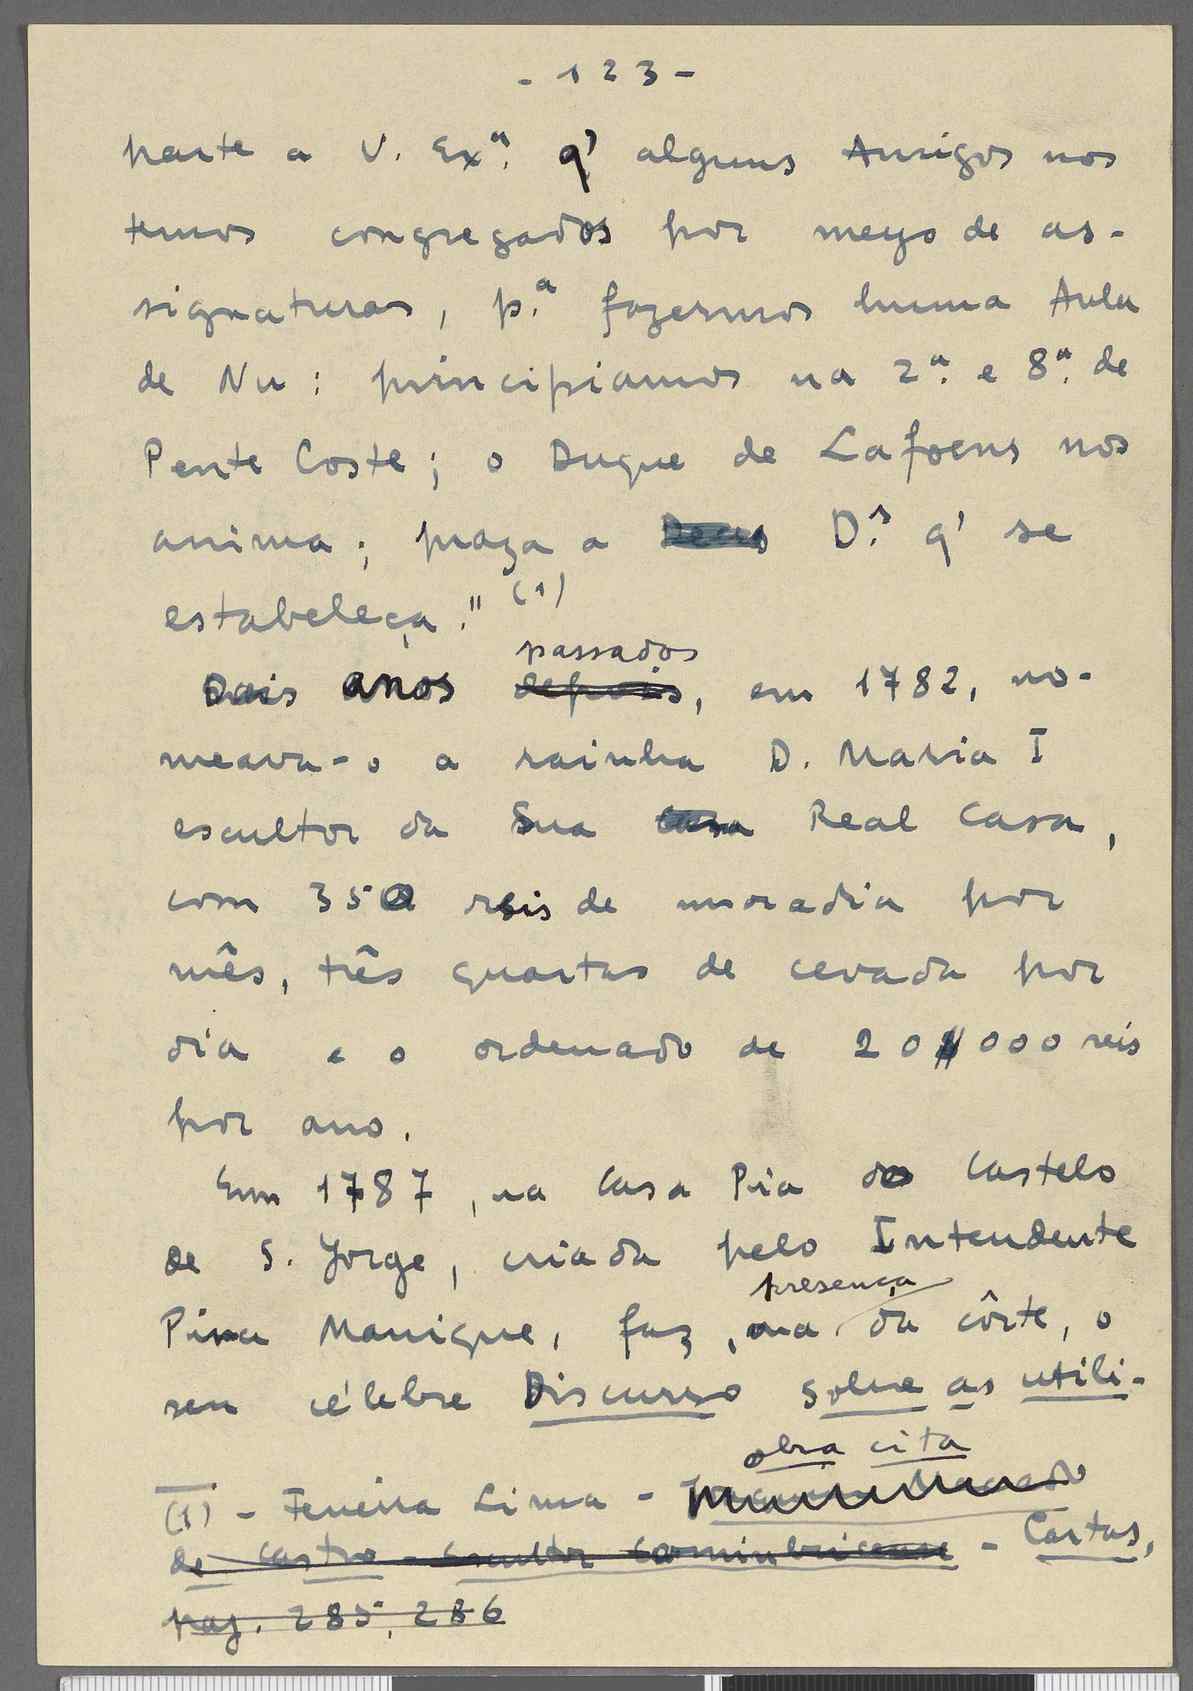 - 123 -
parte a V. Exª. q' alguns Amigos nos
temos congregados por meyo de as-
signaturas, p.ª fazermos huma Aula
de Nu: principiamos na 2ª. e 8ª. de
Pente Coste; o Duque de Lafoens nos
anima; praza a Deus D.s q' se
estabeleça." (1)
passados
Dois anos depois, em 1782, no-
meava-o a rainha D. Maria I
escultor da Sua Casa Real Casa,
com 350 reis de moradia por
mês, três quartas de cevada por
dia e o ordenado de 20$000 reis
por ano.
Em 1787, na Casa Pia do Castelo
de S. Jorge, criada pelo Intendente
presença
Pina Manique, faz, na da côrte, o
seu célebre Discurso sobre as utili-
obra cita
(1) - Ferreira Lima - Machado
de Castro - Escultor Conimbricense - Cartas,
pag. 285, 286